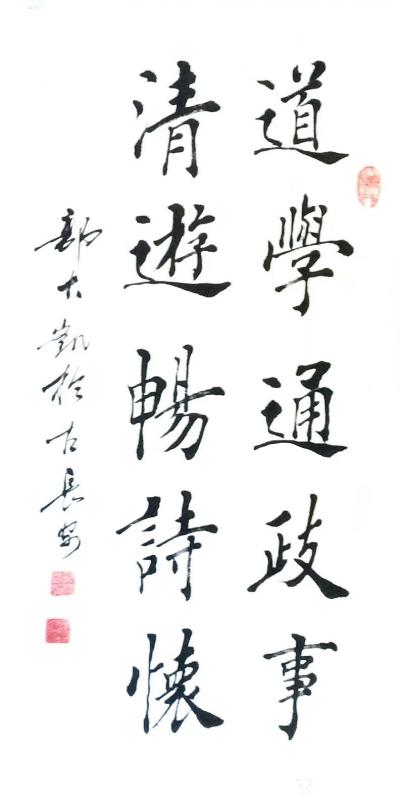 道學通政事
清遊暢詩懷
郭大凱於古長安